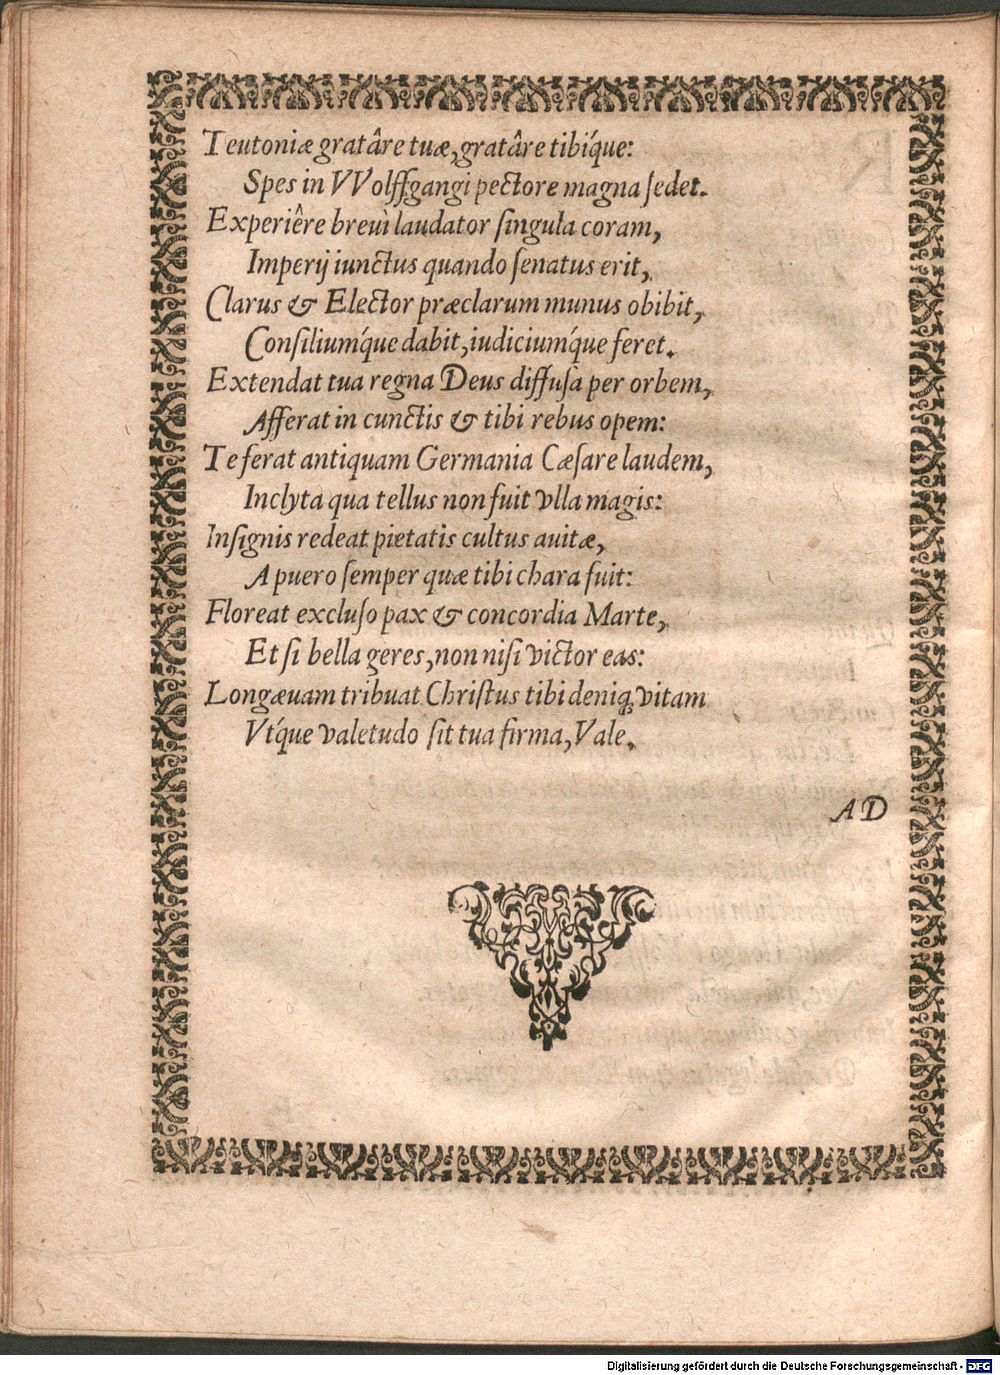 Teutoniæ gratâre tuæ, gratâre tibiq́ue:
Spes in VVolffgangi pectore magna ſedet.
Experiêre breuì laudator ſingula coram,
Imperij iunctus quando ſenatus erit,
Clarus & Elector præclarum munus obibit,
Conſiliumq́ue dabit, iudiciumq́ue feret.
Extendat tua regna Deus diffuſa per orbem,
Afferat in cunctis & tibi rebus opem:
Te ferat antiquam Germania Cæſare laudem,
Inclyta qua tellus non fuit vlla magis:
Inſignis redeat pietatis cultus auitæ,
A puero ſemper quæ tibi chara fuit:
Floreat excluſo pax & concordia Marte,
Et ſi bella geres, non niſi victor eas:
Longæuam tribuat Chriſtus tibi deniq; vitam
Vtq́ue valetudo ſit tua firma, Vale.
AD
Digitalisierung gefördert durch die Deutsche Forschungsgemeinschaft - DFG